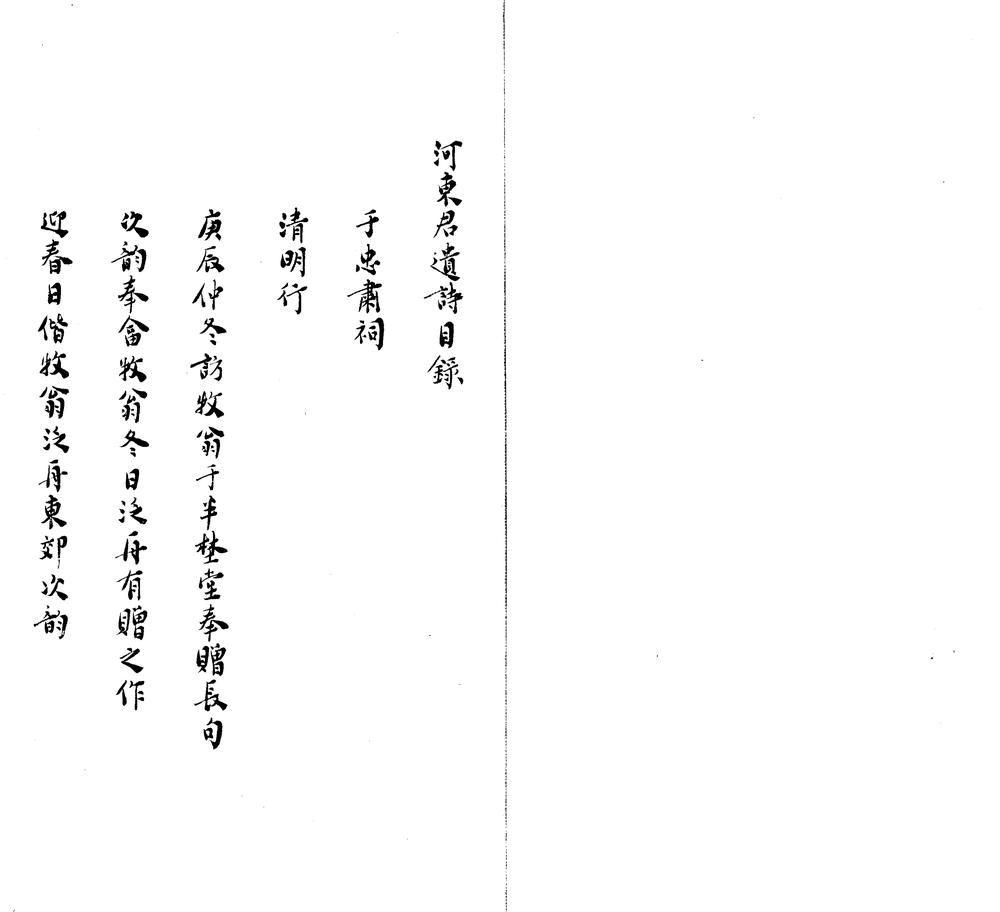 河東君遺詩目錄
于忠肅祠
清明行
庚辰仲冬訪牧翁于半埜堂奉贈長句
次韵奉畣牧翁冬日泛舟有贈之作
迎春日偕牧翁泛舟東郊次韵